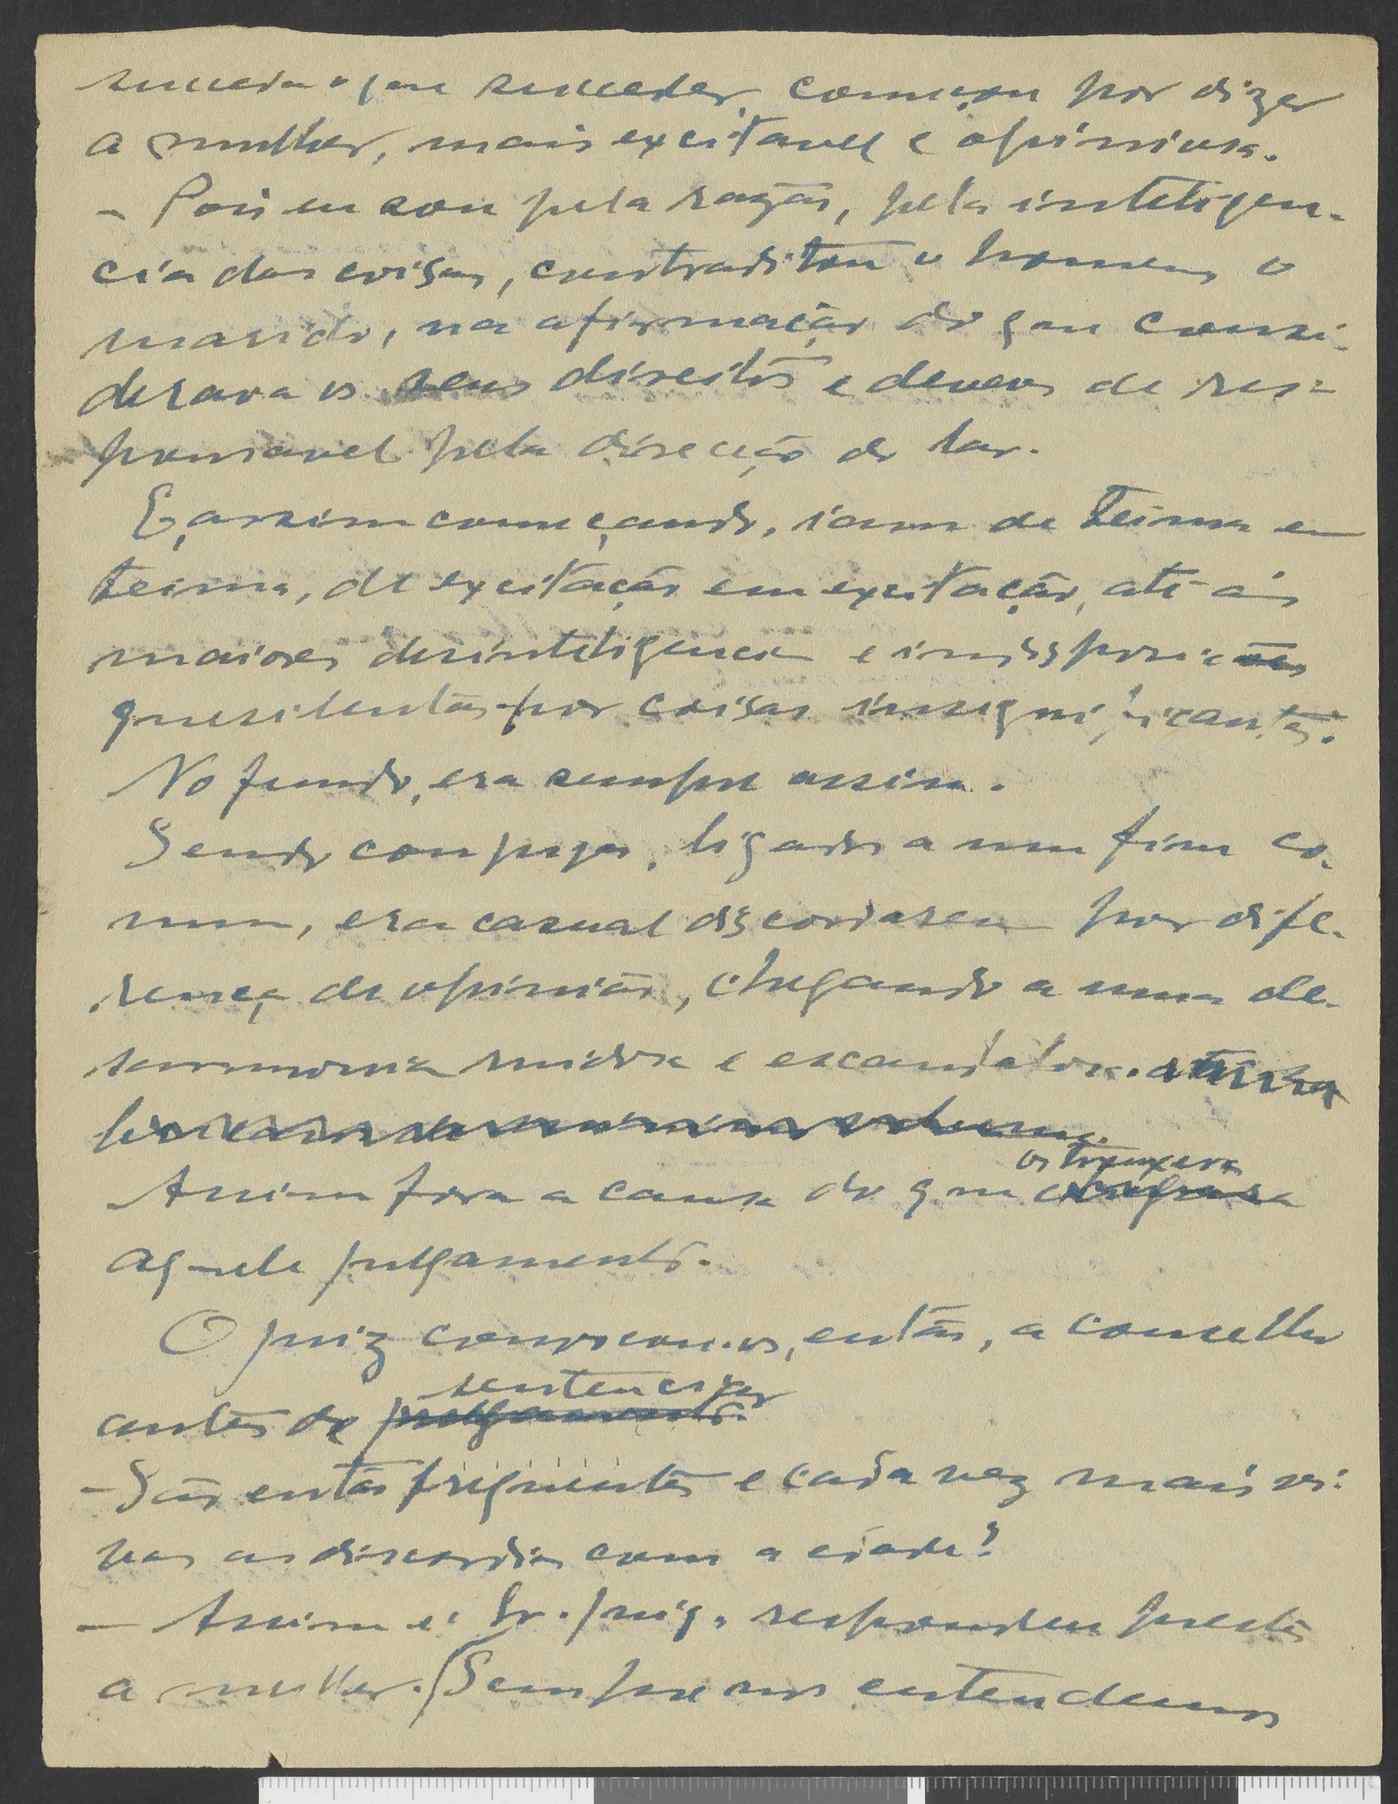 suceda o que suceder, começou por dizer
a mulher, mais excitavel e opiniosa.
- Pois eu sou pela razão, pela inteligen-
cia das coisas, contraditou o homem, o
marido, na afirmação do que consi-
derava os seus direitos e deveres de res-
ponsavel pela direcção do lar.
E, assim começando, iam de teima em
teima, de excitação em excitação, até ás
maiores desinteligencias e indisposicões
quesilentas por coisas insignificantes.
No fundo, era sempre assim.
Sendo conjuges, ligados a um fim co-
mum, era casual discordarem por dife-
rença de opinião, chegando a uma de-
sarmonia ruidosa e escandalosa.
os trouxera
Assim fora a causa do que
aquele julgamento.
O juiz convocou-os, então, a conselho
sentenciar
antes de julgamento.
- São então frequentes e cada vez mais vi-
vas as discordias com a idade?
- Assim é Sr. juiz, respondeu prestes
a mulher. (Sempre nos entendemos